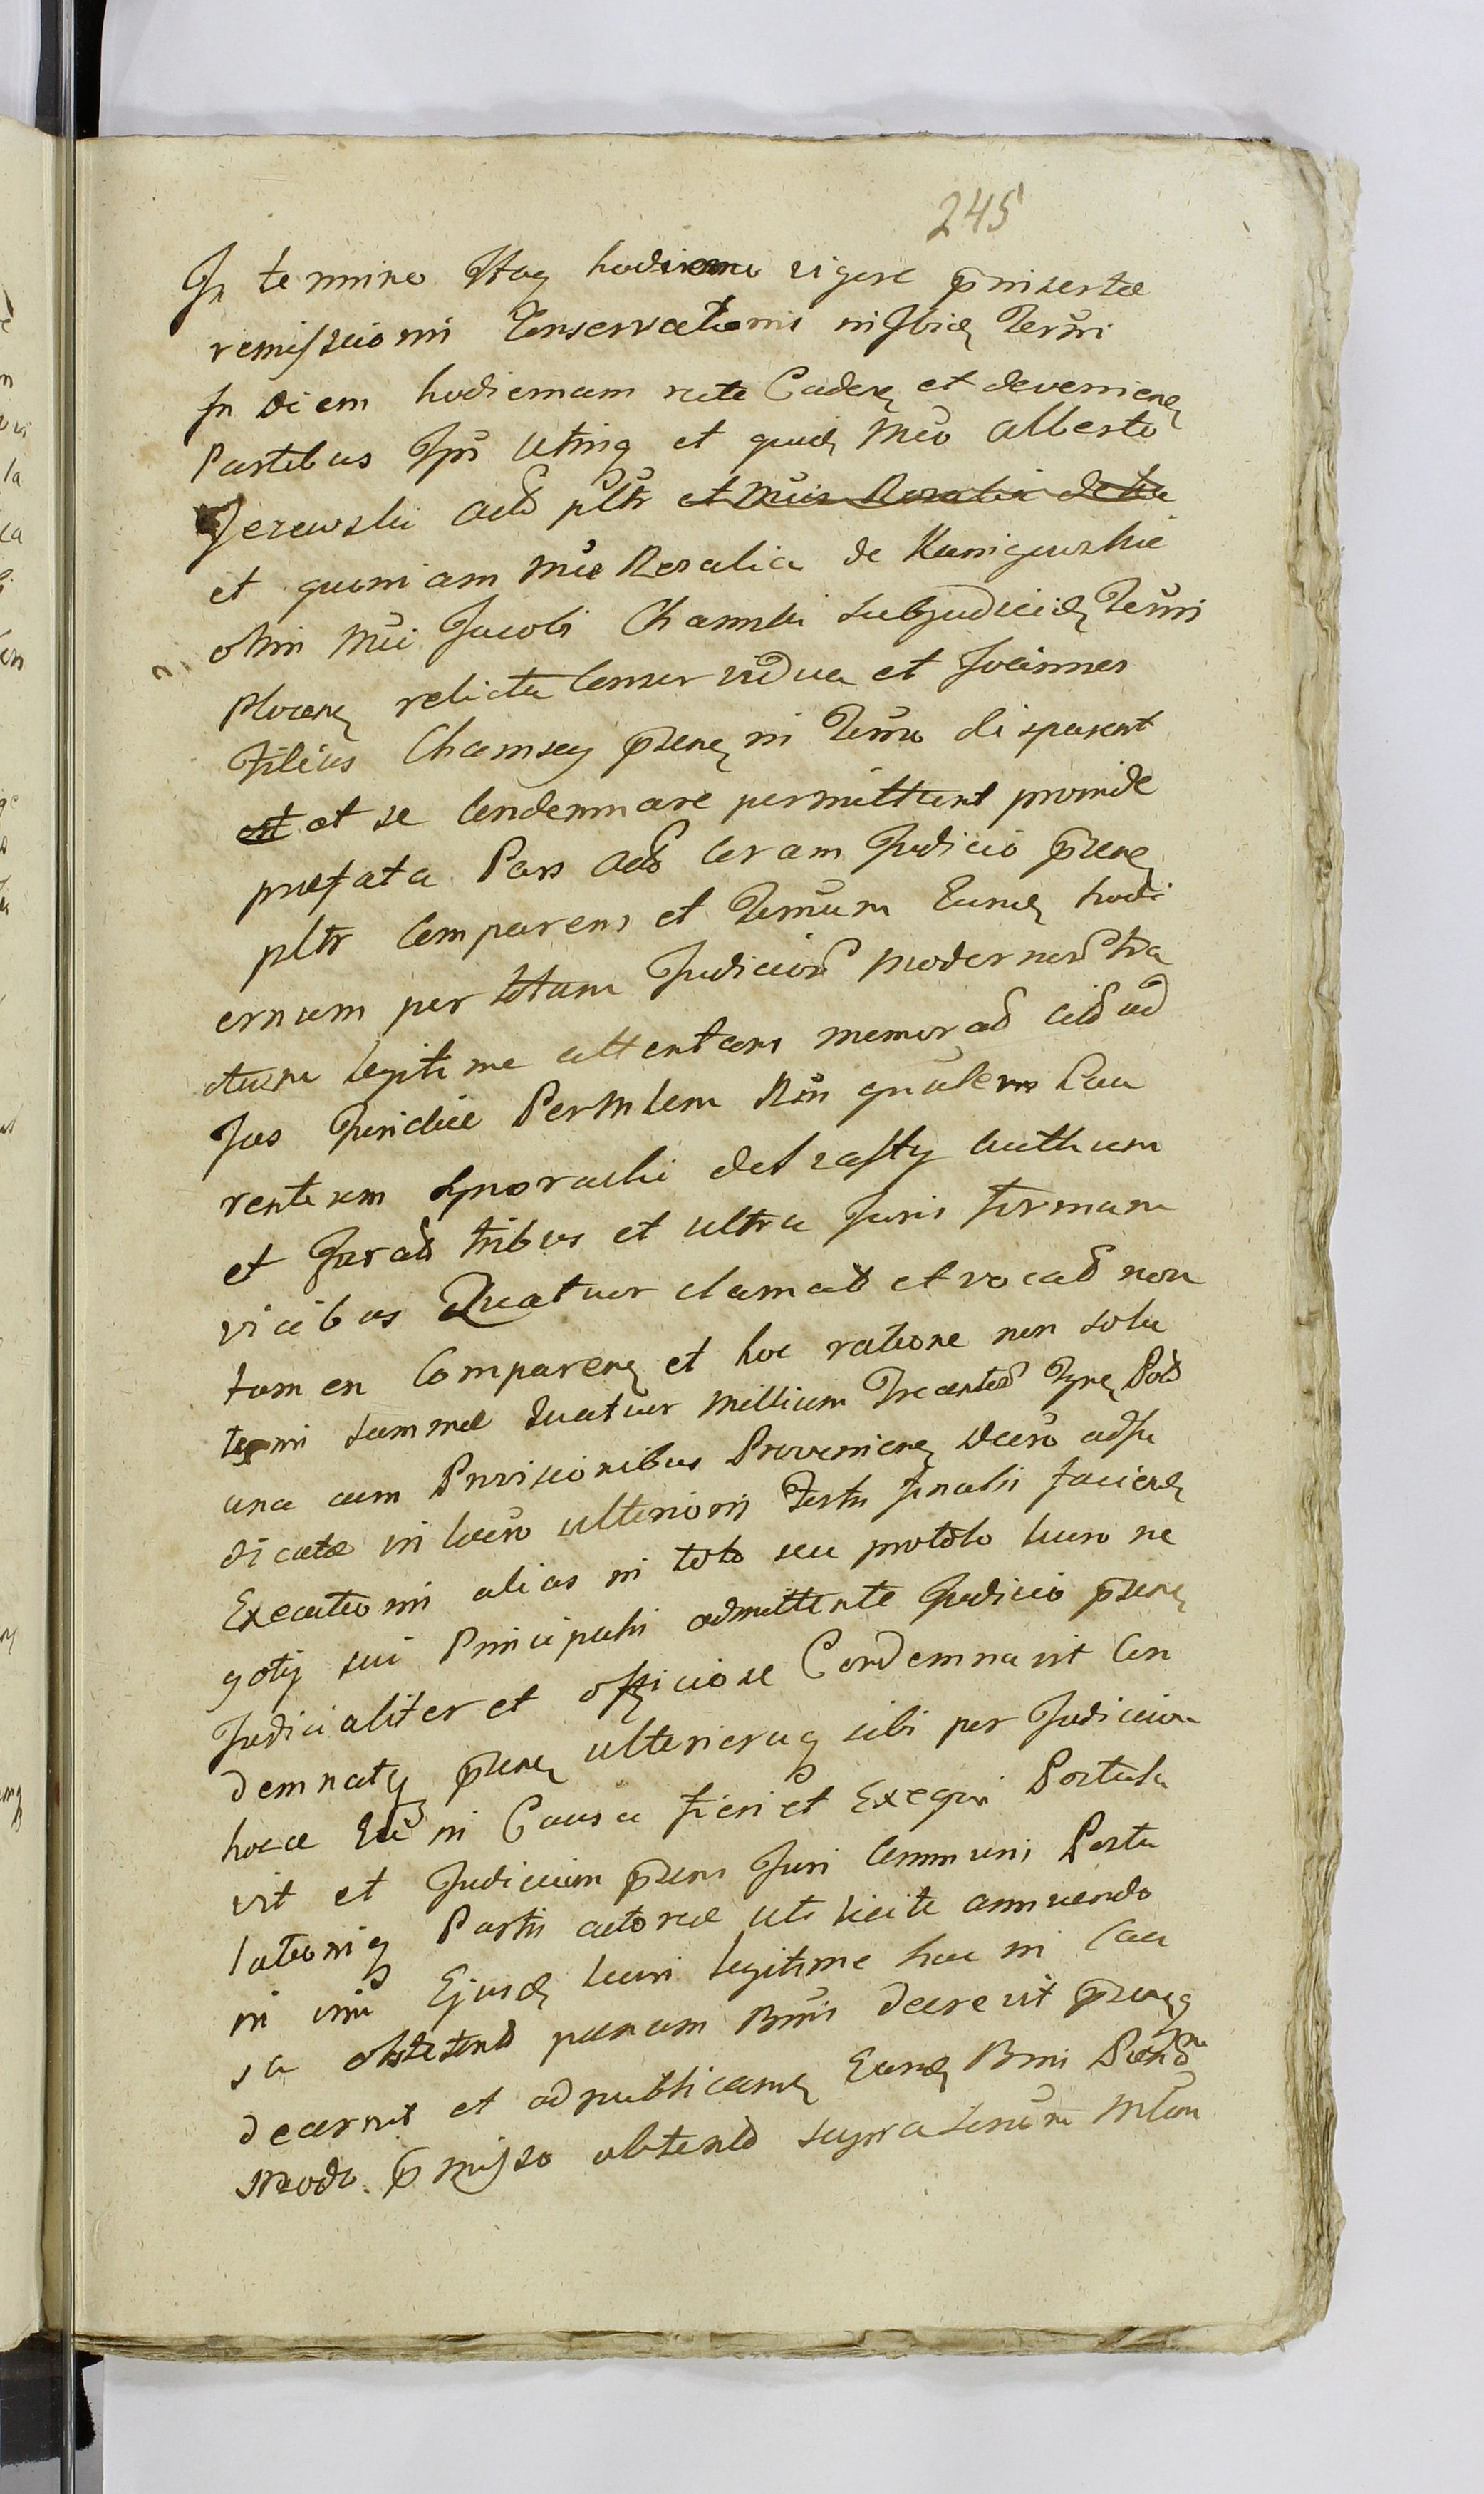 245
In termino Itaq hodierno vigore p̃misertæ
remissionis Conservationis nisbid Termi
In diem hodiernam rite Caden et devenien
Partibus Ips̃ utrinq et quid Mco Alberto
Jezewski Act pltr et Mcis Rosalia de
et quoniam Mca Rosalia de Kunigowskie
olim Mci Jacobi Chamski Subjudicis Terris
Plocen relicta Conser vidua et Joannes
Filius Chamscy p̃sen in Termo disparent
est et se Condemnare permittunt proinde
præfata Pars Act Coram Judicio p̃sen
pltr Comparens et Terminum Eund hodi
ernum per totum Judicior modernor tra
ctum legitime attentans memorat citat ad
Jus Juridice Per Mlem Rin grãlem Cau
rentium Synoracki detrasty Authum
et Jurat tribus et ultra Juris formam
vicibus Quatuor clamat et vocat non
tamen Comparen et hoc ratione non solu
tæ sum̃mæ Quatuor Millium Trecentor Tyn Pol
una cum Provisionibus Provenien Decro adju
dicatæ in lucro ulterioris Juris finalis facien
Executioni alias in toto seu protoło lucro ne
gotij sui Principalis admittente Judicio p̃sen
Judicialiter et officiose Condemnavit Con
demnatq p̃sen ulteriorusq sibi per Judicium
hocce Eã in Causa fieri et Exequi Postula
vit et Judicium p̃sens Juri Communi Postu
lationiq Partis actoreæ uti licite annuendo
in vim Ejusd lucri legitime hac in Cau
sa obtetent pœnam Bnis decrevit p̃senq
decernit et ad publicand Eand Bni Pœnam
Modo p̃misso obtento supra Terminum Mlem